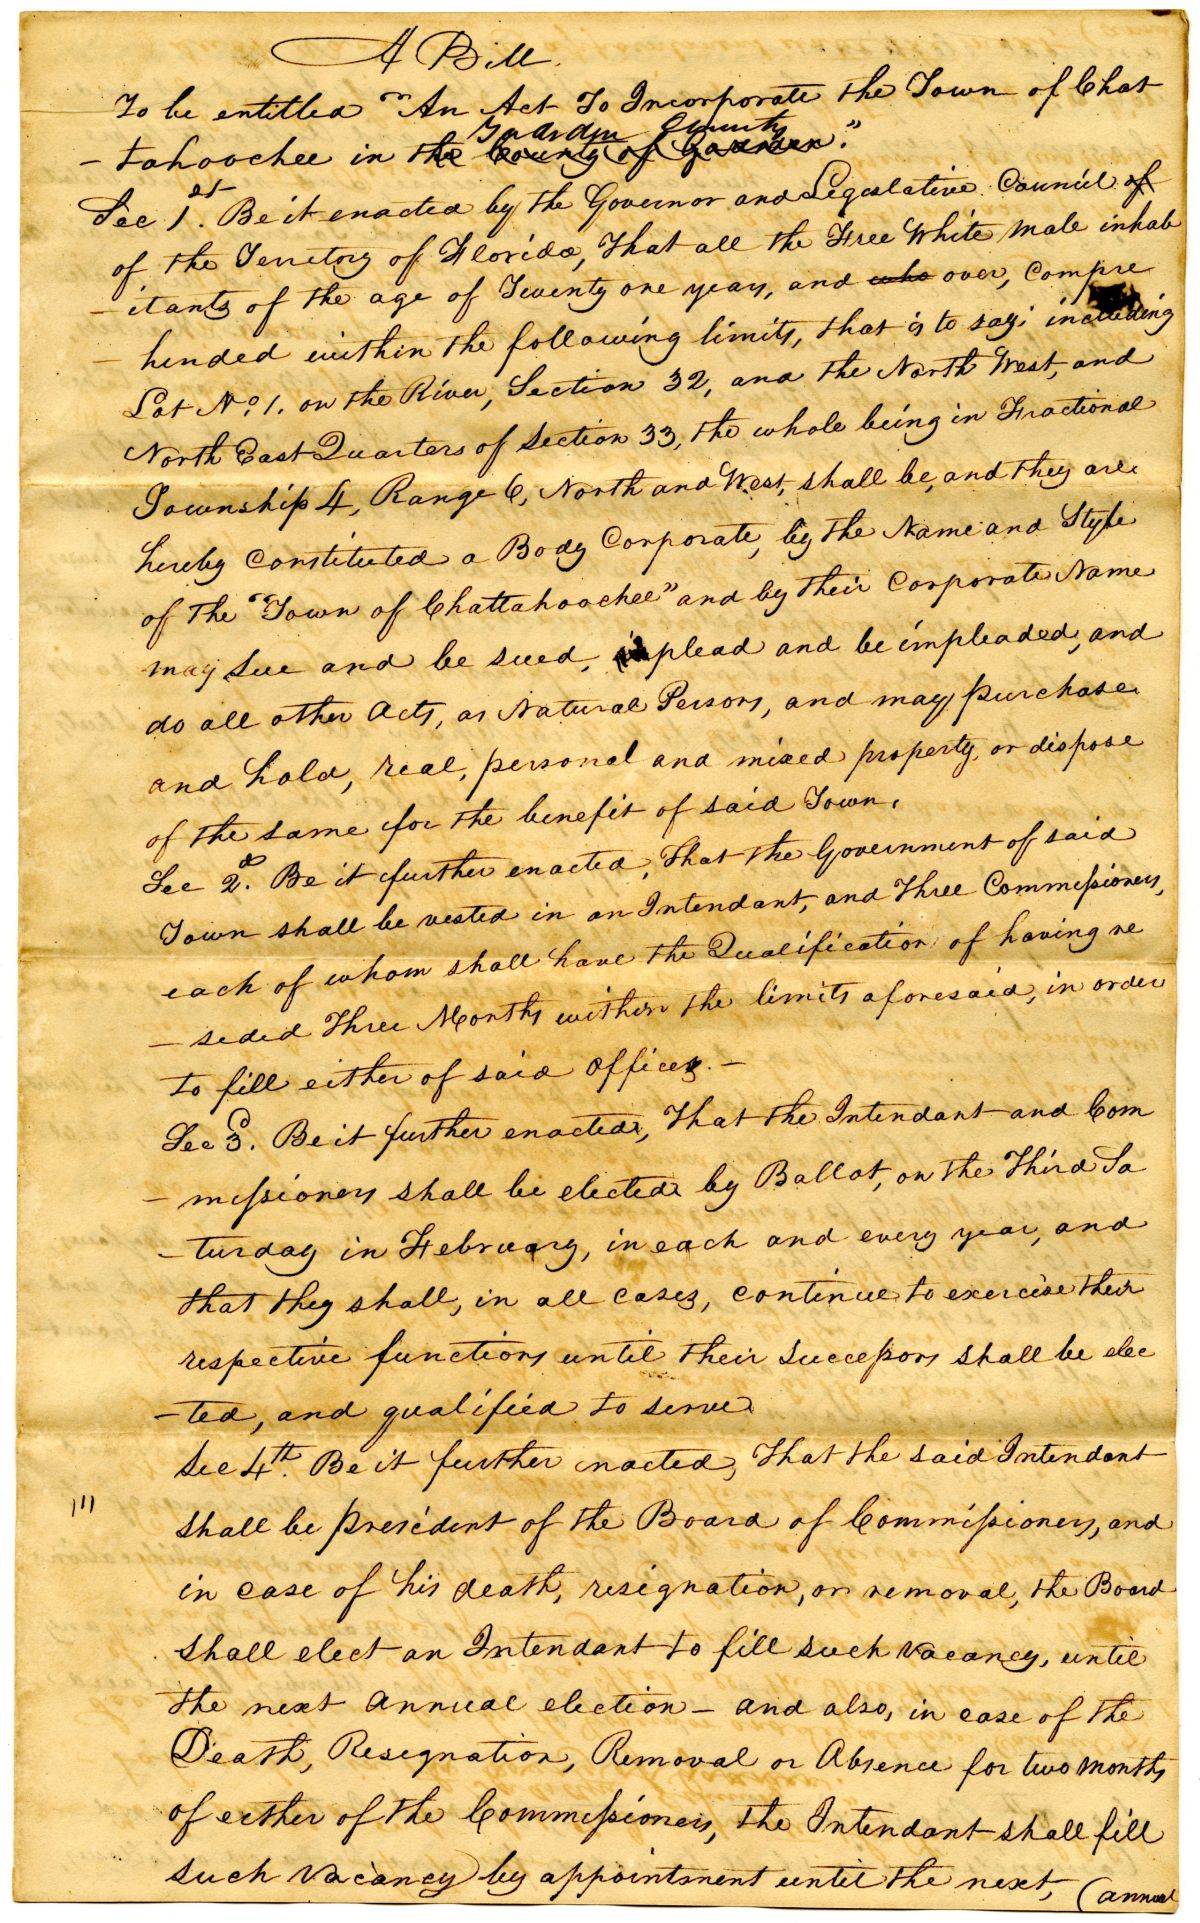 A Bill.
To be entitled "An Act To Incorporate the Town of Chat
Gadsden County
- tahoochee in the County of Gadsden."
Sec 1st. Be it enacted by the Governor and Legislative Council of
of the Terretory of Florida, That all the Free White male inhab
- itants of the age of Twenty one years, and who over, compre
- hended within the following limits, that is to say; including
Lot No. 1. on the River, Section 32, and the North West, and
North East Quarters of Section 33, the whole being in Fractional
Township 4, Range 6, North and West, shall be, and they are
hereby constituted a Body Corporate, by the Name and Style
of the "Town of Chattahoochee" and by their Corporate Name
may sue and be sued, plead and be impleaded, and
do all other Acts, as Natural Persons, and may purchase
and hold, real, personal and mixed property, or dispose
of the same for the benefit of said Town.
Sec 2d. Be it further enacted, That the Government of said
Town shall be vested in an Intendant, and Three Commissioners,
each of whom shall have the Qualification of having re
- seded Three Months within the limits aforesaid, in order
to fill either of said offices. -
Sec 3d. Be it further enacted, That the Intendant and Com
- missioners shall be elected by Ballot, on the Third Sa
- turday in February, in each and every year, and
that they shall, in all cases, continue to exercise their
respective functions until their Successors shall be elec
- ted, and qualified to serve.
Sec 4th. Be it further enacted, That the said Intendant
shall be president of the Board of Commissioners, and
in case of his death, resignation, or removal, the Board
shall elect an Intendant to fill such vacancy, until
the next annual election - and also, in case of the
Death, Resignation, Removal or Absence for two months
of either of the Commissioners, the Intendant shall fill
such vacancy by appointment until the next, (annual